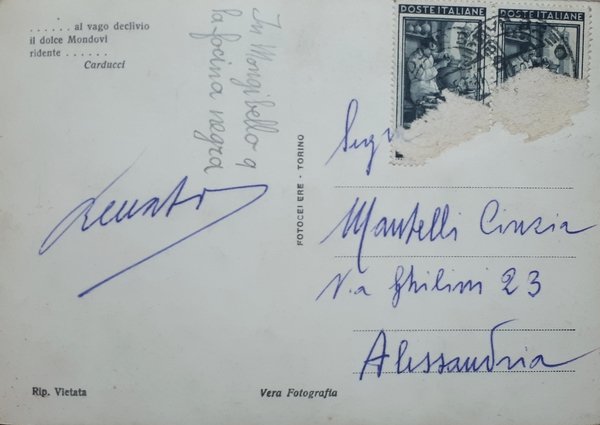 . . . . . . al vago declivio
il dolce Mondovì
ridente . . . . . .
Carducci
In Mongibello a
la fucina negra
Renato
FOTOCELERE - TORINO
POSTE ITALIANE
POSTE ITALIANE
Sign
Mantelli Cinzia
Via Ghilini 23
Alessandria
Rip. Vietata
Vera Fotografia